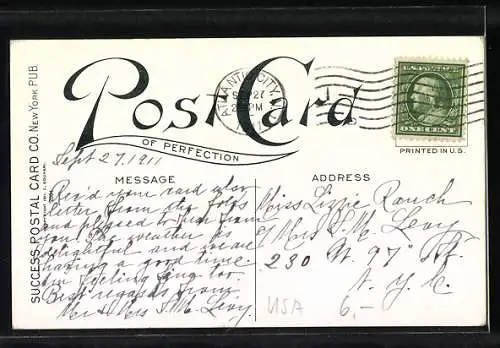 SUCCESS POSTAL CARD CO. NEW YORK PUB.
Post Card
OF PERFECTION
ATLANTIC CITY
SEP 27
PM
ONE CENT
PRINTED IN U.S.
Sept 27, 1911
MESSAGE
Rec'd your card also
letter from the folks
and pleased to hear from
you. The weather is
delightful and we are
having a good time
am feeling too
Best regards from
Mr & Mrs S. M. Levy.
ADDRESS
Miss Lizzie Rauch
c/ Mrs S. M. Levy
230 W. 97" St
N. Y. C.
USA
6,-